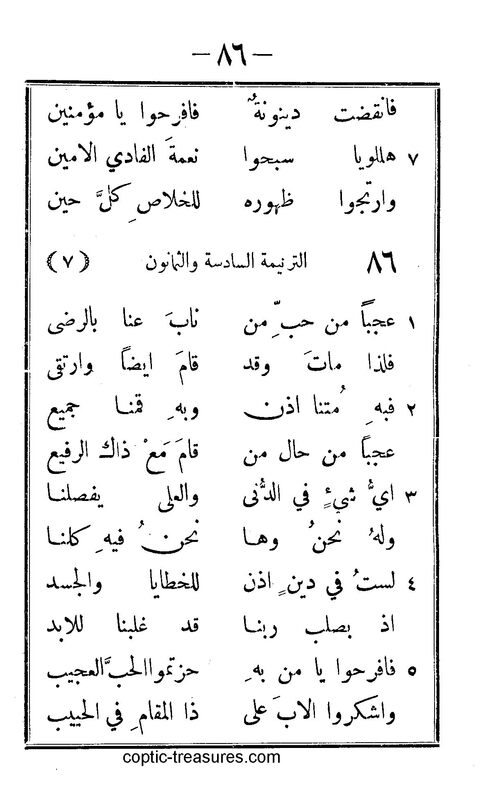 — ٨٦ —
فانقضت دينونةٌ فافرحوا يا مؤمنين
٧ هللويا سبحوا نعمةَ الفادي الامين
وارتجوا ظهوره للخلاصِ كلَّ حين
٨٦ الترنيمة السادسة والثمانون (٧)
١ عجباً من حبِّ من نابَ عنا بالرضى
فلذا ماتَ وقد قامَ ايضاً وارتقى
٢ فبهِ مُتنا اذن وبهِ قمنا جميع
عجباً من حال من قامَ مَعْ ذاك الرفيع
٣ ايُّ شيءٍ في الدُّنى والعلى يفصلنا
ولهُ نحنُ وها نحنُ فيهِ كلنا
٤ لستُ في دينٍ اذن للخطايا والجسد
اذ بصلب ربنا قد غلبنا للابد
٥ فافرحوا يا من بهِ حزتمواالحبَّ العجيب
واشكروا الابَ على ذا المقامِ في الحبيب
coptic-treasures.com